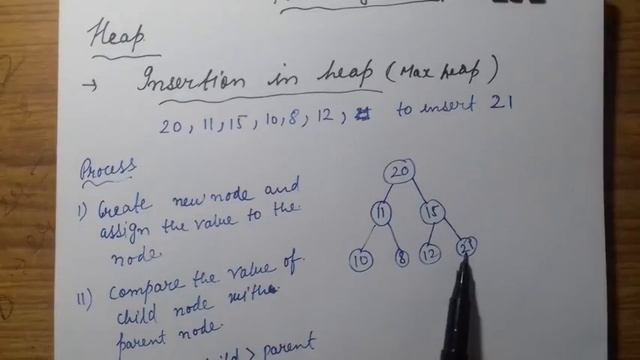 Heap
→ Insertion in heap (Max heap)
20, 11, 15, 10, 8, 12, to insert 21
Process
I) Create new node and
assign the value to the
node.
II) Compare the value of
child node with
parent node.
child > parent
20
11 15
10 8 12 21